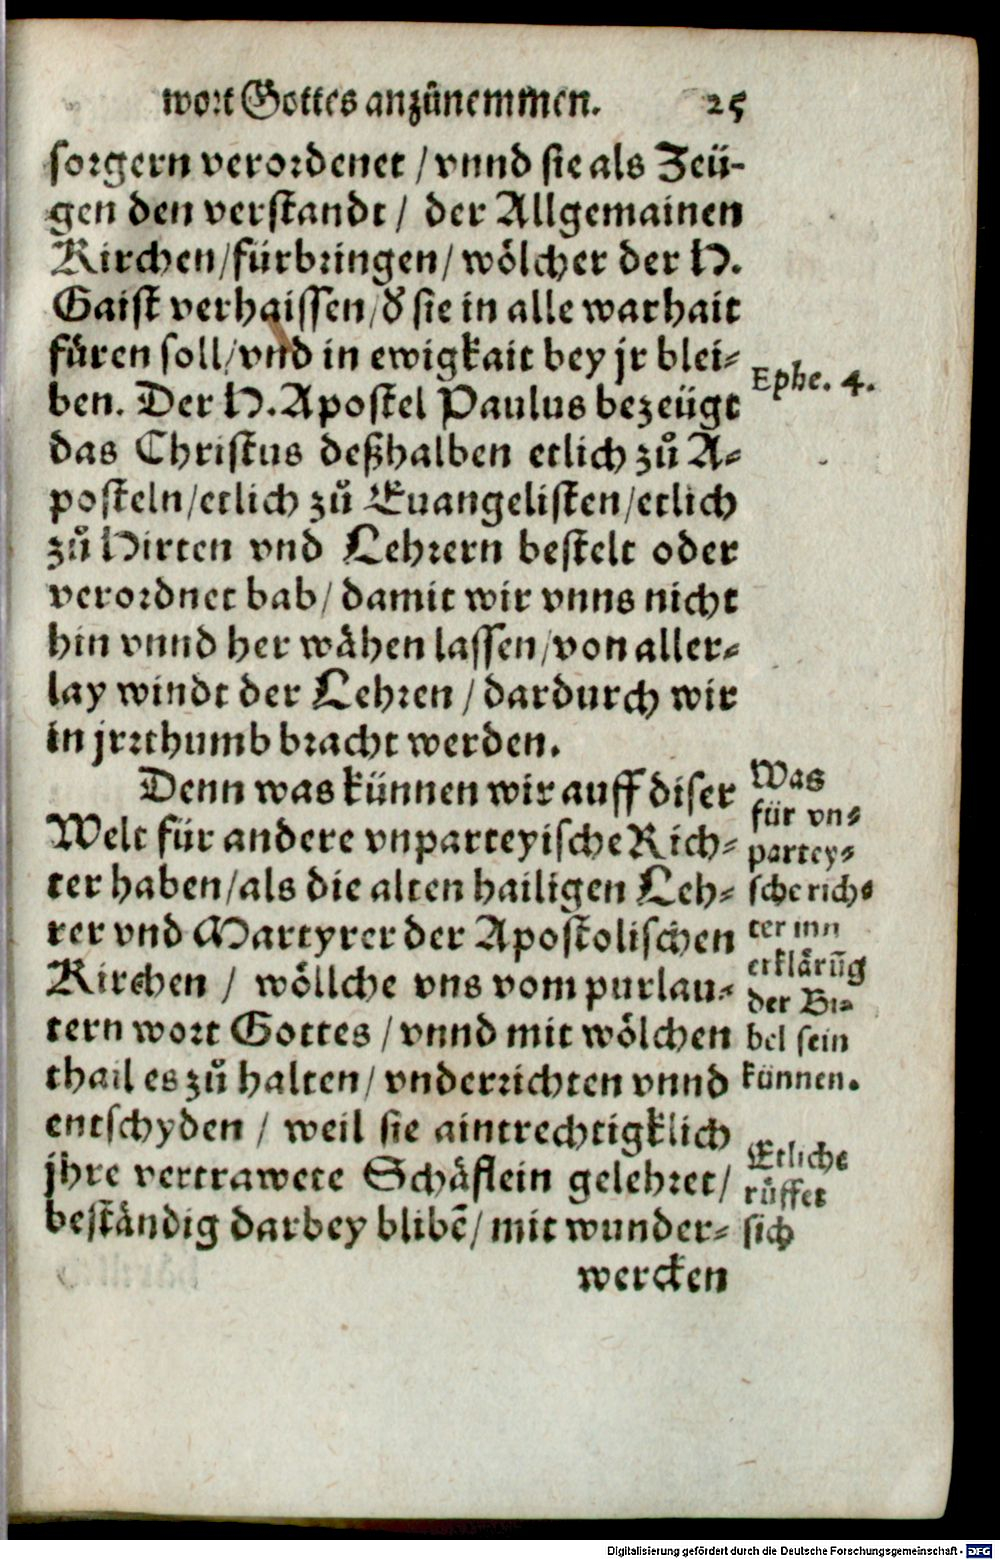 wort Gottes anzůnemmen. 25
sorgern verordenet / vnnd sie als Zeü-
gen den verstandt / der Allgemainen
Kirchen / fürbringen / wölcher der H.
Gaist verhaissen / d' sie in alle warhait
füren soll / vnd in ewigkait bey jr blei-
ben. Der H. Apostel Paulus bezeügt
Ephe. 4.
das Christus deßhalben etlich zů A-
posteln / etlich zů Euangelisten / etlich
zů Hirten vnd Lehrern bestelt oder
verordnet hab / damit wir vnns nicht
hin vnnd her wähen lassen / von aller-
lay windt der Lehren / dardurch wir
in jrrthumb bracht werden.
Denn was künnen wir auff diser
Welt für andere vnparteyische Rich-
ter haben / als die alten hailigen Leh-
rer vnd Martyrer der Apostolischen
Kirchen / wöllche vns vom purlau-
tern wort Gottes / vnnd mit wölchen
thail es zů halten / vnderrichten vnnd
entschyden / weil sie aintrechtigklich
jhre vertrawete Schäflein gelehret /
beständig darbey blibẽ / mit wunder-
wercken
Was
für vn-
partey-
sche rich-
ter inn
erklärũg
der Bi-
bel sein
künnen.
Etliche
rüffet
sich
Digitalisierung gefördert durch die Deutsche Forschungsgemeinschaft - DFG